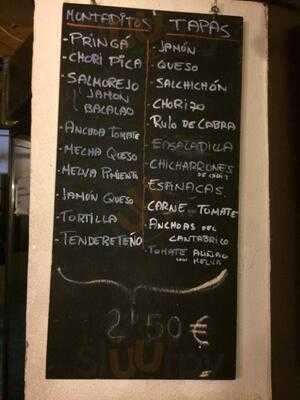 MONTADITOS
- PRINGÁ
- CHORI PICA
- SALMOREJO
JAMON
BACALAO
- ANCHOA TOMATE
- MELCHA QUESO
- MELVA PIMIENTO
- JAMÓN QUESO
- TORTILLA
- TENDERETEÑO
TAPAS
- JAMÓN
- QUESO
- SALCHICHÓN
- CHORIZO
- RULO DE CABRA
- ENSALADILLA
- CHICHARRONES
DE CÁDIZ
- ESPINACAS
- CARNE CON TOMATE
- ANCHOAS DEL
CANTABRICO
- TOMATE ALIÑAO
CON MELVA
2'50 €